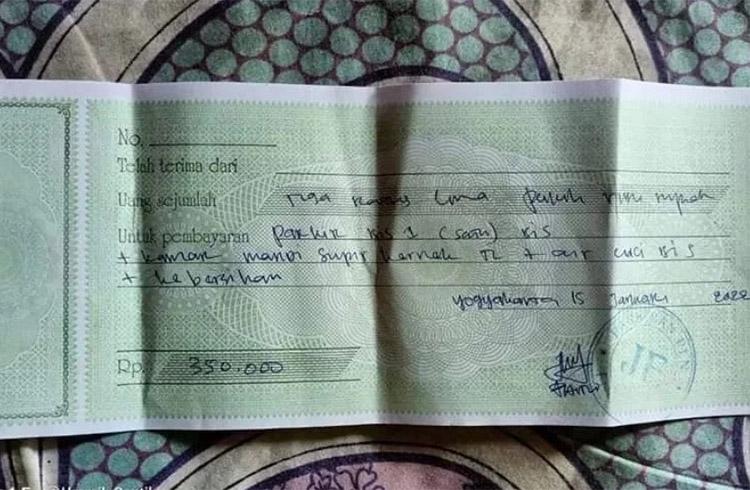 No.
Telah terima dari
Uang sejumlah Tiga Ratus Lima puluh ribu rupiah
Untuk pembayaran parkir Bis 1 (satu) Bis
+ kamar mandi supir kernek TL + air cuci Bis
+ kebersihan
Yogyakarta 15 Januari 2022
Rp. 350.000